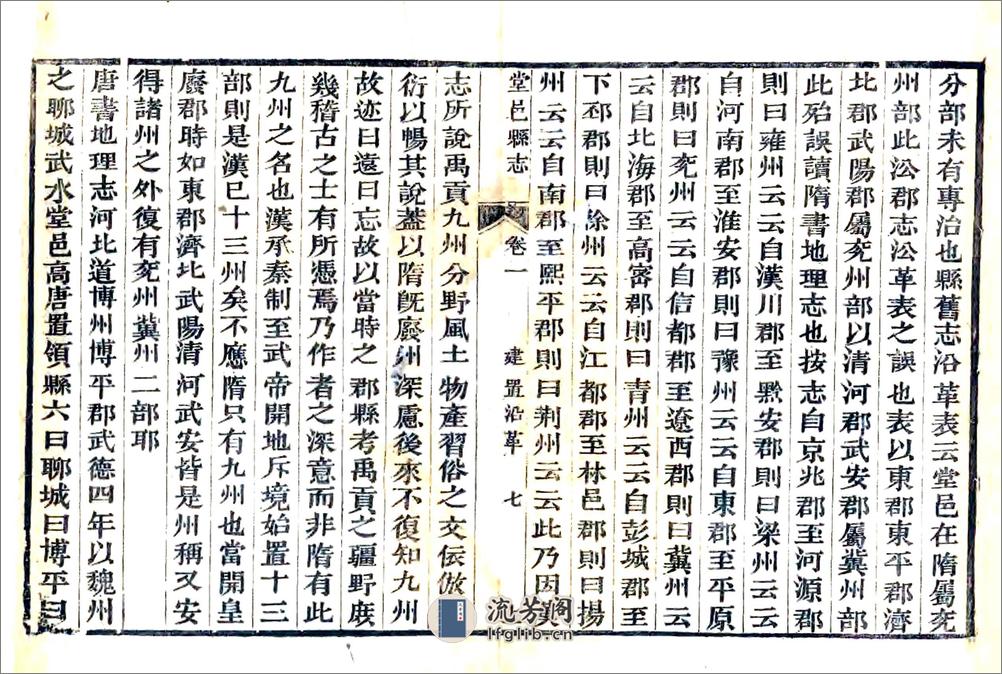 分部未有專治也縣舊志沿革表云堂邑在隋屬兖
州部此㳂郡志㳂革表之誤也表以東郡東平郡濟
北郡武陽郡屬兖州部以清河郡武安郡屬冀州部
此殆誤讀隋書地理志也按志自京兆郡至河源郡
則曰雍州云云自漢川郡至黔安郡則曰梁州云云
自河南郡至淮安郡則曰豫州云云自東郡至平原
郡則曰兖州云云自信都郡至遼西郡則曰冀州云
云自北海郡至高密郡則曰青州云云自彭城郡至
下邳郡則曰徐州云云自江都郡至林邑郡則曰揚
州云云自南郡至熙平郡則曰荆州云云此乃因
堂邑縣志 卷一 建置沿革 七
志所說禹貢九州分野風土物產習俗之文伝倣
衍以暢其說蓋以隋旣廢州深慮後來不復知九州
故迹日遠日忘故以當時之郡縣考禹貢之疆野庻
幾稽古之士有所憑焉乃作者之深意而非隋有此
九州之名也漢承秦制至武帝開地斥境始置十三
部則是漢已十三州矣不應隋只有九州也當開皇
廢郡時如東郡濟北武陽清河武安皆是州稱又安
得諸州之外復有兖州冀州二部耶
唐書地理志河北道博州博平郡武德四年以魏州
之聊城武水堂邑高唐置領縣六曰聊城曰博平曰
流芳阁
lfglib.cn